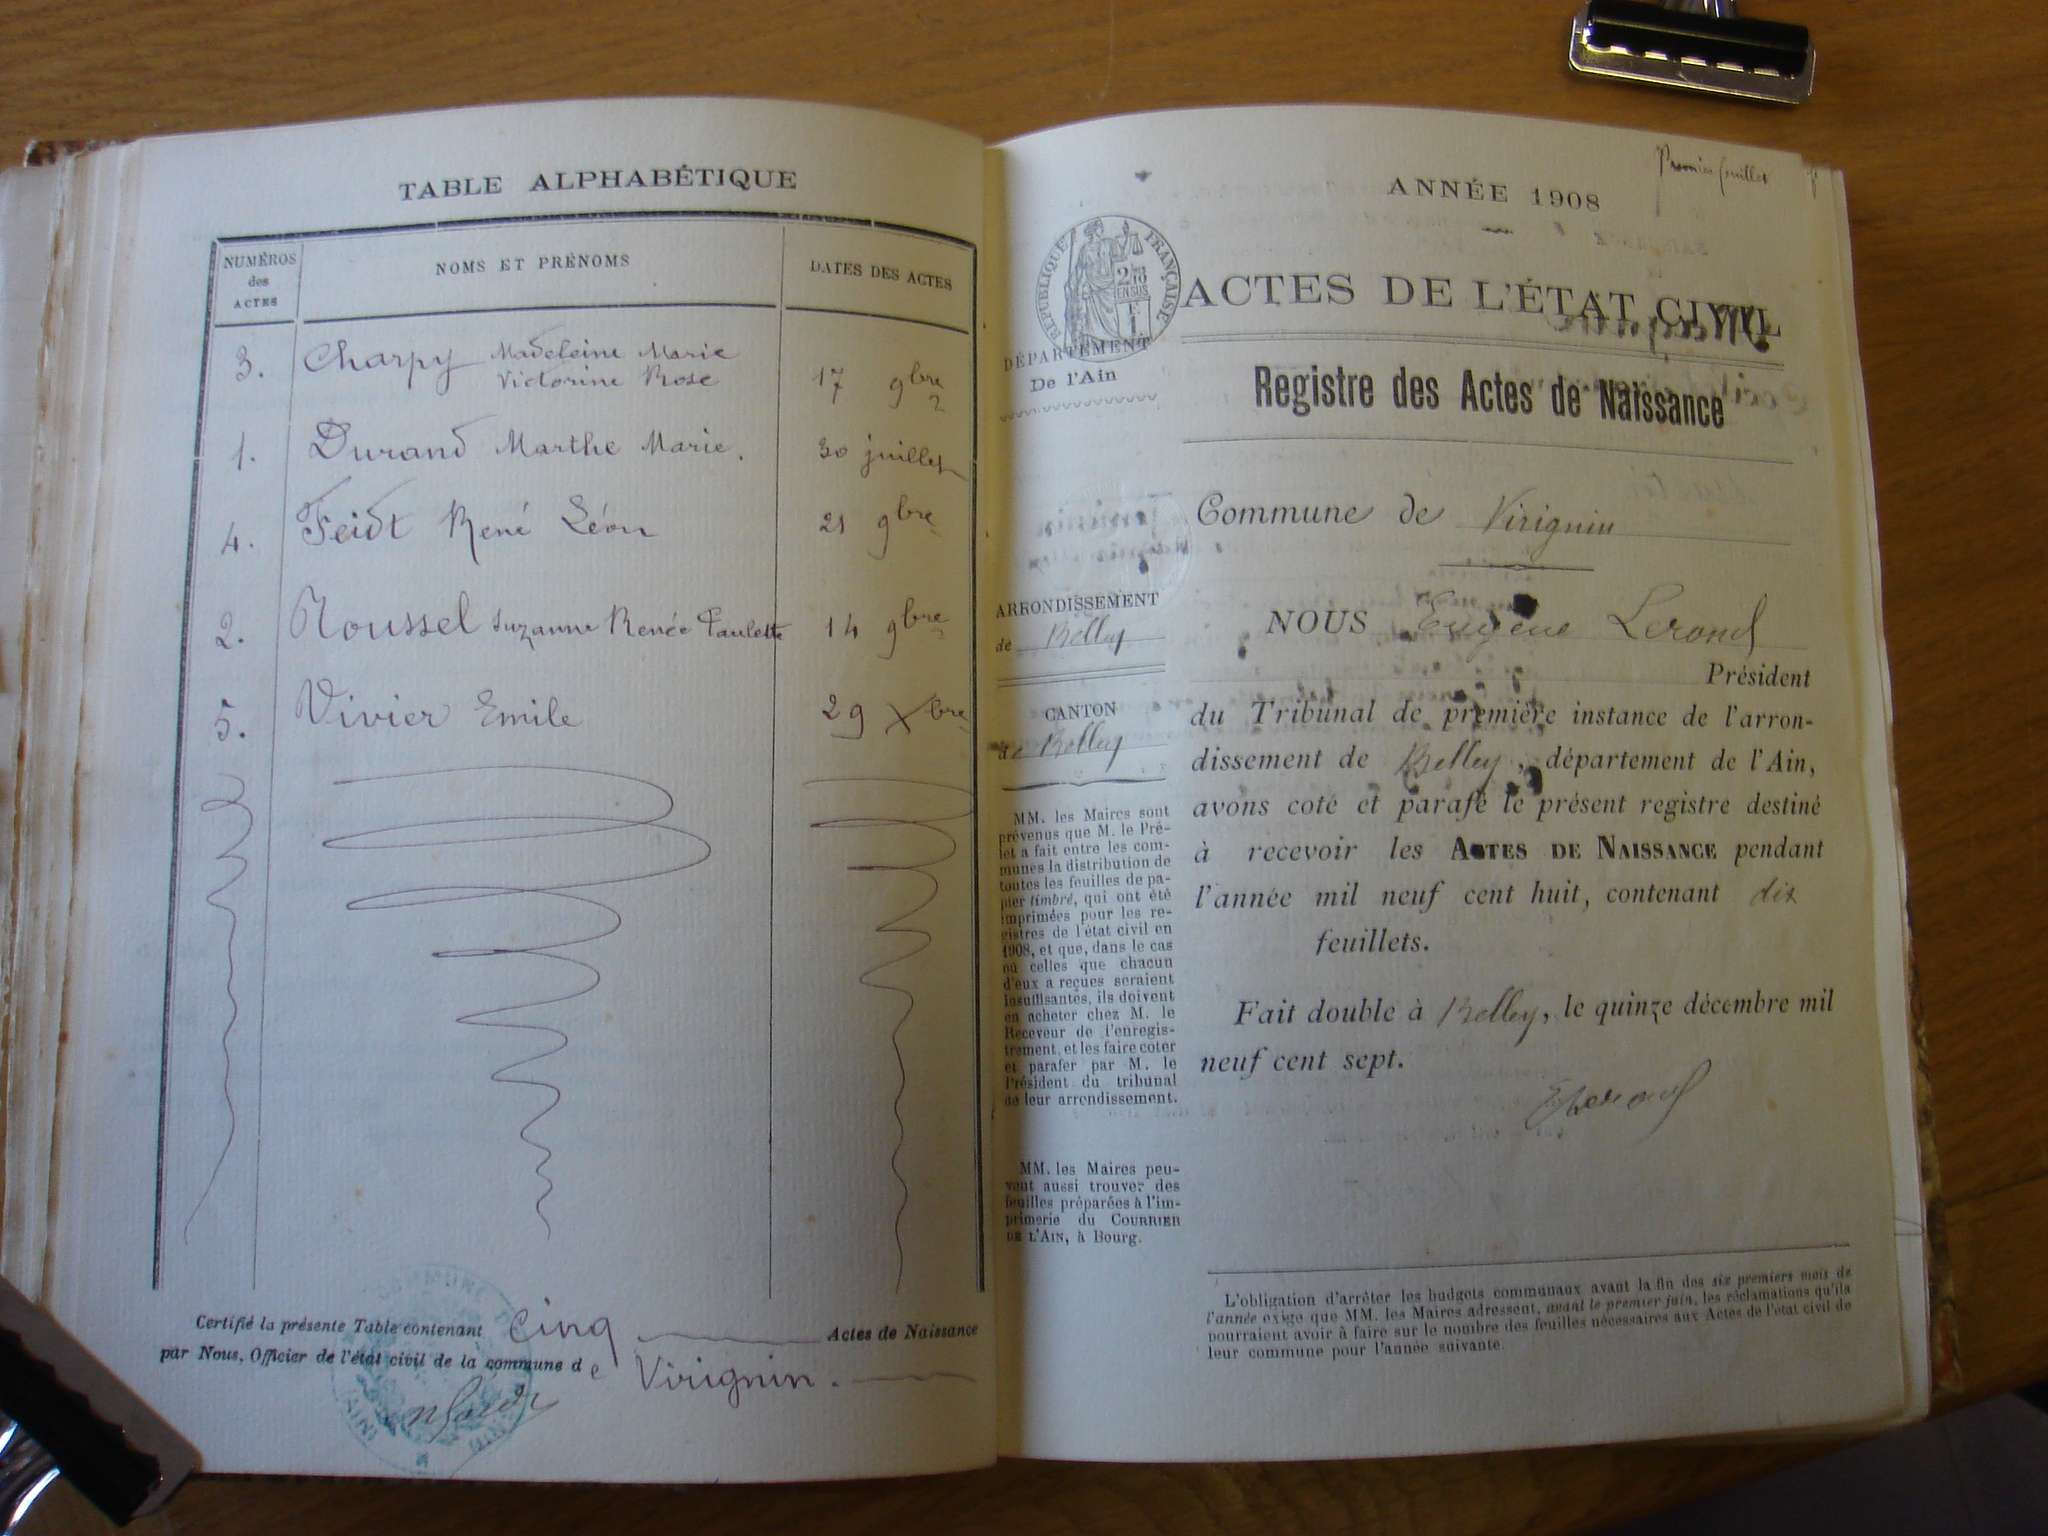 TABLE ALPHABÉTIQUE
NUMÉROS
des
ACTES
NOMS ET PRÉNOMS
DATES DES ACTES
3. Charpy Madeleine Marie
Victorine Rose 17 9bre
1. Durand Marthe Marie. 30 juillet
4. Feidt René Léon 21 9bre
2. Roussel Suzanne Renée Paulette 14 9bre
5. Vivier Emile 29 Xbre
Certifié la présente Table contenant cinq Actes de Naissance
par Nous, Officier de l'état civil de la commune de Virignin.
Premier feuillet
ANNÉE 1908
RÉPUBLIQUE FRANÇAISE
2/10 EN SUS
DÉPARTEMENT
De l'Ain
ACTES DE L'ÉTAT CIVIL
Registre des Actes de Naissance
Commune de Virignin
ARRONDISSEMENT
de Belley
CANTON
de Belley
MM. les Maires sont
prévenus que M. le Pré-
fet a fait entre les com-
munes la distribution de
toutes les feuilles de pa-
pier timbré, qui ont été
imprimées pour les re-
gistres de l'état civil en
1908, et que, dans le cas
où celles que chacun
d'eux a reçues seraient
insuffisantes, ils doivent
en acheter chez M. le
Receveur de l'enregis-
trement, et les faire coter
et parafer par M. le
Président du tribunal
de leur arrondissement.
MM. les Maires peu-
vent aussi trouver des
feuilles préparées à l'im-
primerie du COURRIER
DE L'AIN, à Bourg.
NOUS Eugène Lerond
Président
du Tribunal de première instance de l'arron-
dissement de Belley, département de l'Ain,
avons coté et parafé le présent registre destiné
à recevoir les ACTES DE NAISSANCE pendant
l'année mil neuf cent huit, contenant dix
feuillets.
Fait double à Belley, le quinze décembre mil
neuf cent sept.
ELerond
L'obligation d'arrêter les budgets communaux avant la fin des six premiers mois de
l'année exige que MM. les Maires adressent, avant le premier juin, les réclamations qu'ils
pourraient avoir à faire sur le nombre des feuilles nécessaires aux Actes de l'état civil de
leur commune pour l'année suivante.